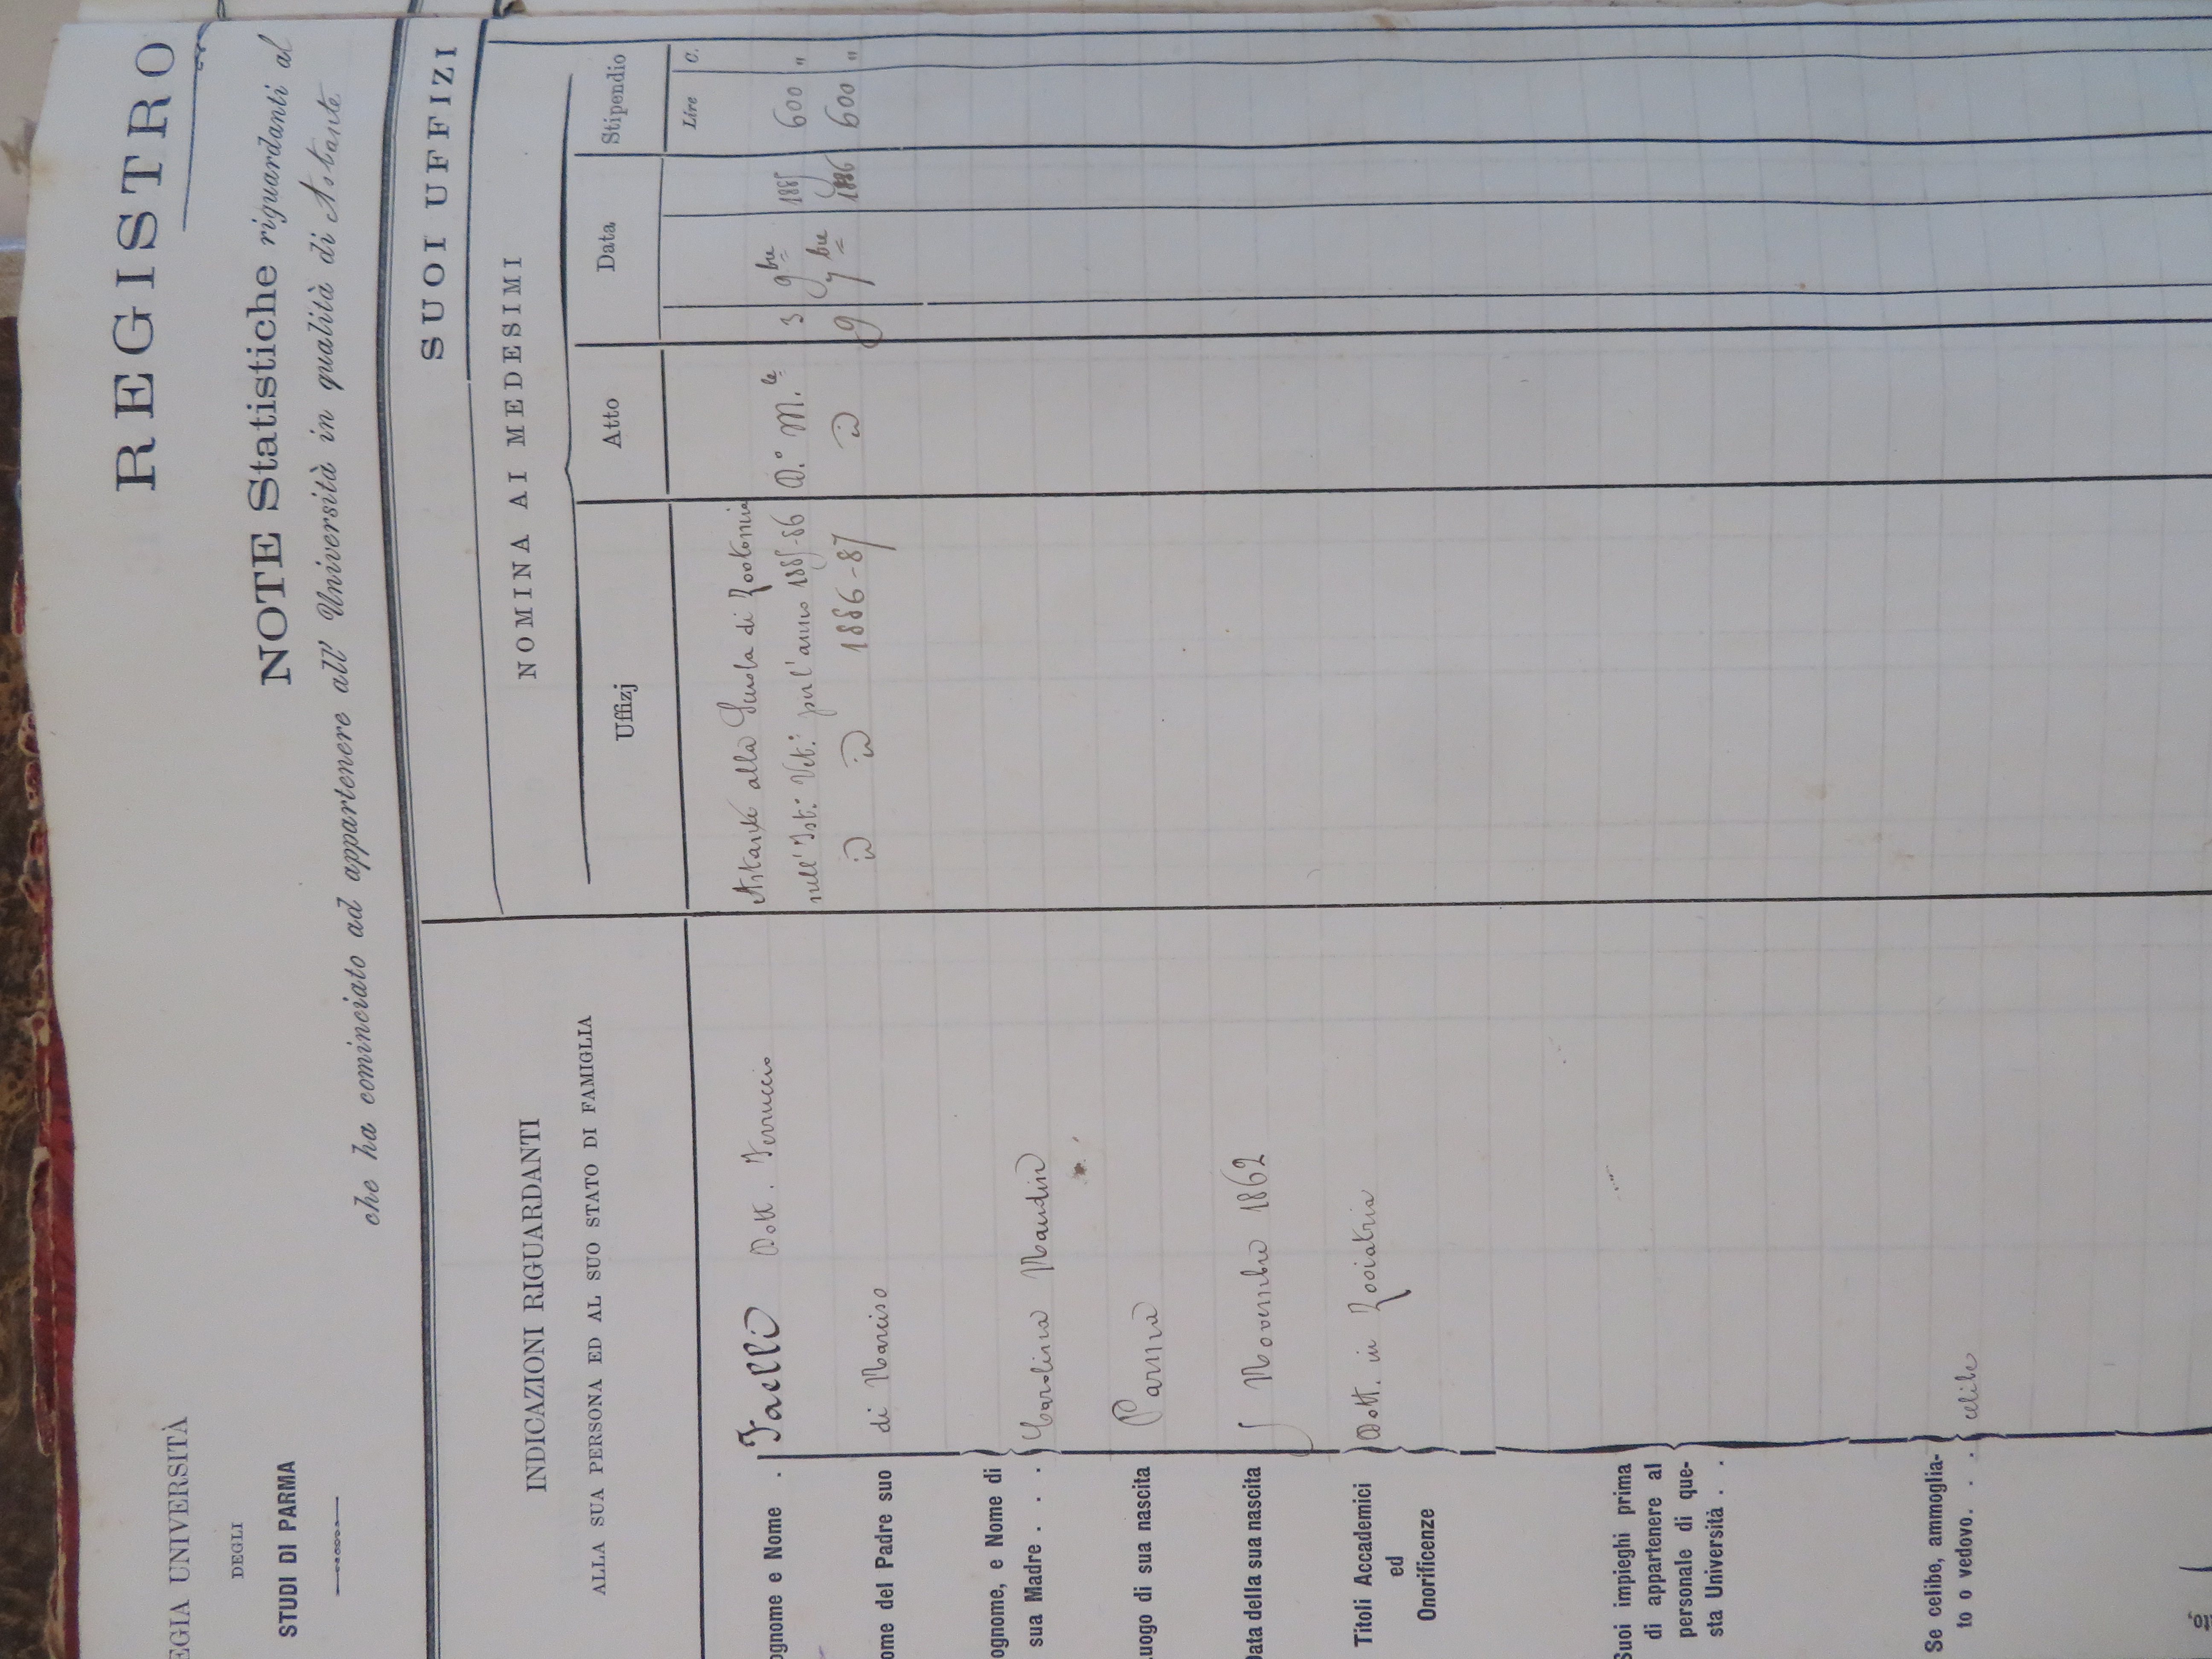 EGIA UNIVERSITÀ
DEGLI
STUDI DI PARMA
REGISTRO
NOTE Statistiche riguardanti al
che ha cominciato ad appartenere all' Università in qualità di Astante
INDICAZIONI RIGUARDANTI
ALLA SUA PERSONA ED AL SUO STATO DI FAMIGLIA
ognome e Nome . Faelli Dott. Ferruccio
ome del Padre suo di Narciso
ognome, e Nome di
sua Madre . . . Carolina Nandin
uogo di sua nascita Parma
Data della sua nascita 5 Novembre 1862
Titoli Accademici
ed
Onorificenze
Dott. in Zooiatria
Suoi impieghi prima
di appartenere al
personale di que-
sta Università . .
Se celibe, ammoglia-
to o vedovo. . . celibe
SUOI UFFIZI
NOMINA AI MEDESIMI
Uffizj Atto Data Stipendio
Lire C.
Astante alla Scuola di Zootomia
nell' Ist: Vet: per l'anno 1885-86 D.° M.le 3 9bre 1885 600 "
id id 1886-87 id 9 7bre 1886 600 "